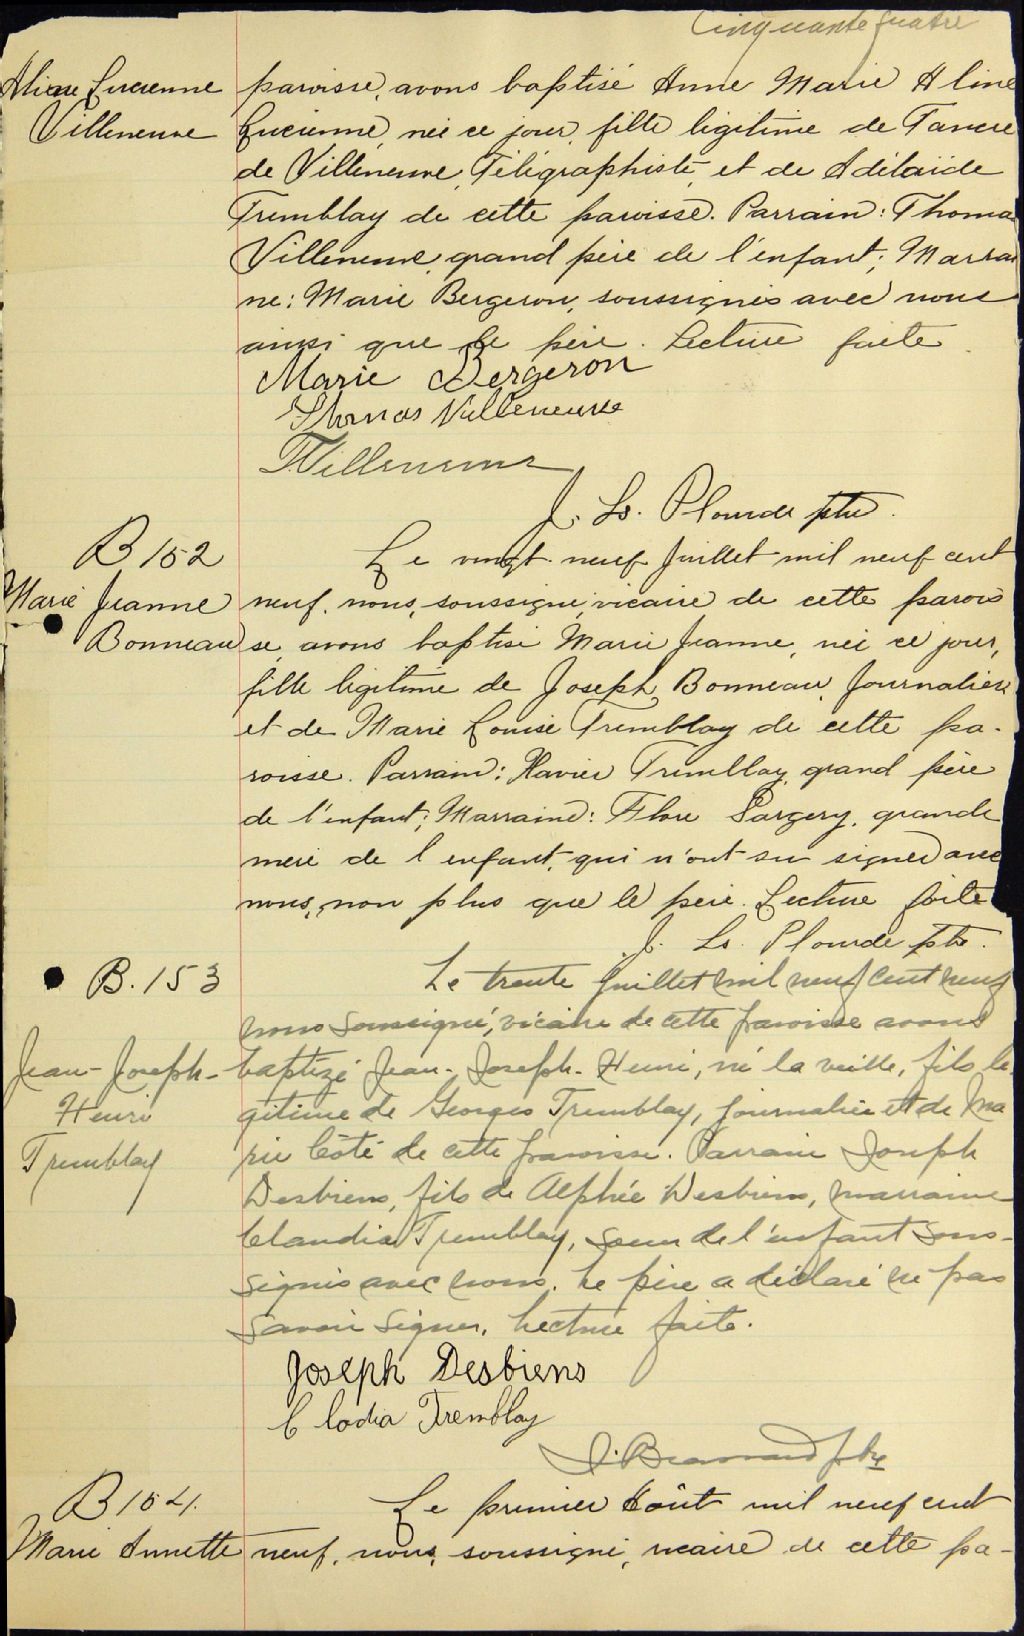 Cinquante quatre
Aline Lucienne
Villeneuve
paroisse, avons baptisé Anne Marie Aline
Lucienne, née ce jour, fille légitime de Tancrè
de Villeneuve, Télégraphiste, et de Adélaïde
Tremblay de cette paroisse. Parrain: Thomas
Villeneuve, grand père de l'enfant; Marrai
ne: Marie Bergeron, soussignés avec nous
ainsi que le père. Lecture faite.
Marie Bergeron
Thomas Villeneuve
T. Villeneuve
J. Ls. Plourde ptre.
B 152
Marie Jeanne
Bonneau
Le vingt neuf Juillet mil neuf cent
neuf, nous, soussigné, vicaire de cette parois
se, avons baptisé Marie Jeanne, née ce jour,
fille légitime de Joseph Bonneau, Journalier
et de Marie Louise Tremblay de cette pa-
roisse. Parrain: Xavier Tremblay, grand père
de l'enfant; Marraine: Flore Sargery, grande
mère de l'enfant, qui n'ont su signer avec
nous, non plus que le père. Lecture faite
J. Ls. Plourde ptre.
B. 153
Jean-Joseph-
Henri
Tremblay
Le trente Juillet mil neuf cent neuf
nous soussigné, vicaire de cette paroisse avons
baptizé Jean-Joseph-Henri, né la veille, fils lé
gitime de Georges Tremblay, journalier et de Ma
rie Côté de cette paroisse. Parrain Joseph
Desbiens, fils de Alphée Desbiens, marraine
Claudia Tremblay, soeur de l'enfant sous-
signés avec nous. Le père a déclaré ne pas
savoir signer. Lecture faite.
Joseph Desbiens
Clodia Tremblay
ptre
B 154.
Marie Annette
Le premier Août mil neuf cent
neuf, nous, soussigné, vicaire de cette pa-